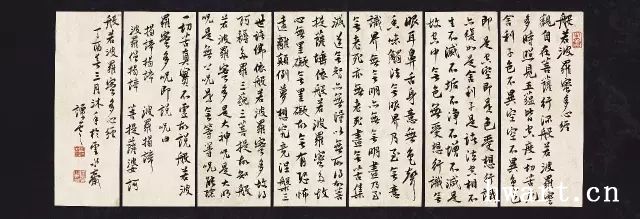 般若波羅蜜多心經
觀自在菩薩行深般若波羅蜜
多時照見五蘊皆空度一切苦厄
舍利子色不異空空不異色色
即是空空即是色受想行識
亦復如是舍利子是諸法空相不
生不滅不垢不淨不增不減是
故空中無色無受想行識無
眼耳鼻舌身意無色聲
香味觸法無眼界乃至無意
識界無無明亦無無明盡乃至
無老死亦無老死盡無苦集
滅道無智亦無得以無所得故菩
提薩埵依般若波羅蜜多故心
無罣礙無罣礙故無有恐怖
遠離顛倒夢想究竟涅槃三
世諸佛依般若波羅蜜多故得
阿耨多羅三藐三菩提故知般
若波羅蜜多是大神咒是大明
咒是無上咒是無等等咒能除
一切苦真實不虛故說般若波
羅蜜多咒即說咒曰
揭諦揭諦 波羅揭諦
波羅僧揭諦 菩提薩婆訶
般若波羅蜜多心經
丁酉年三月沐手於雲水齋
hwart.cn